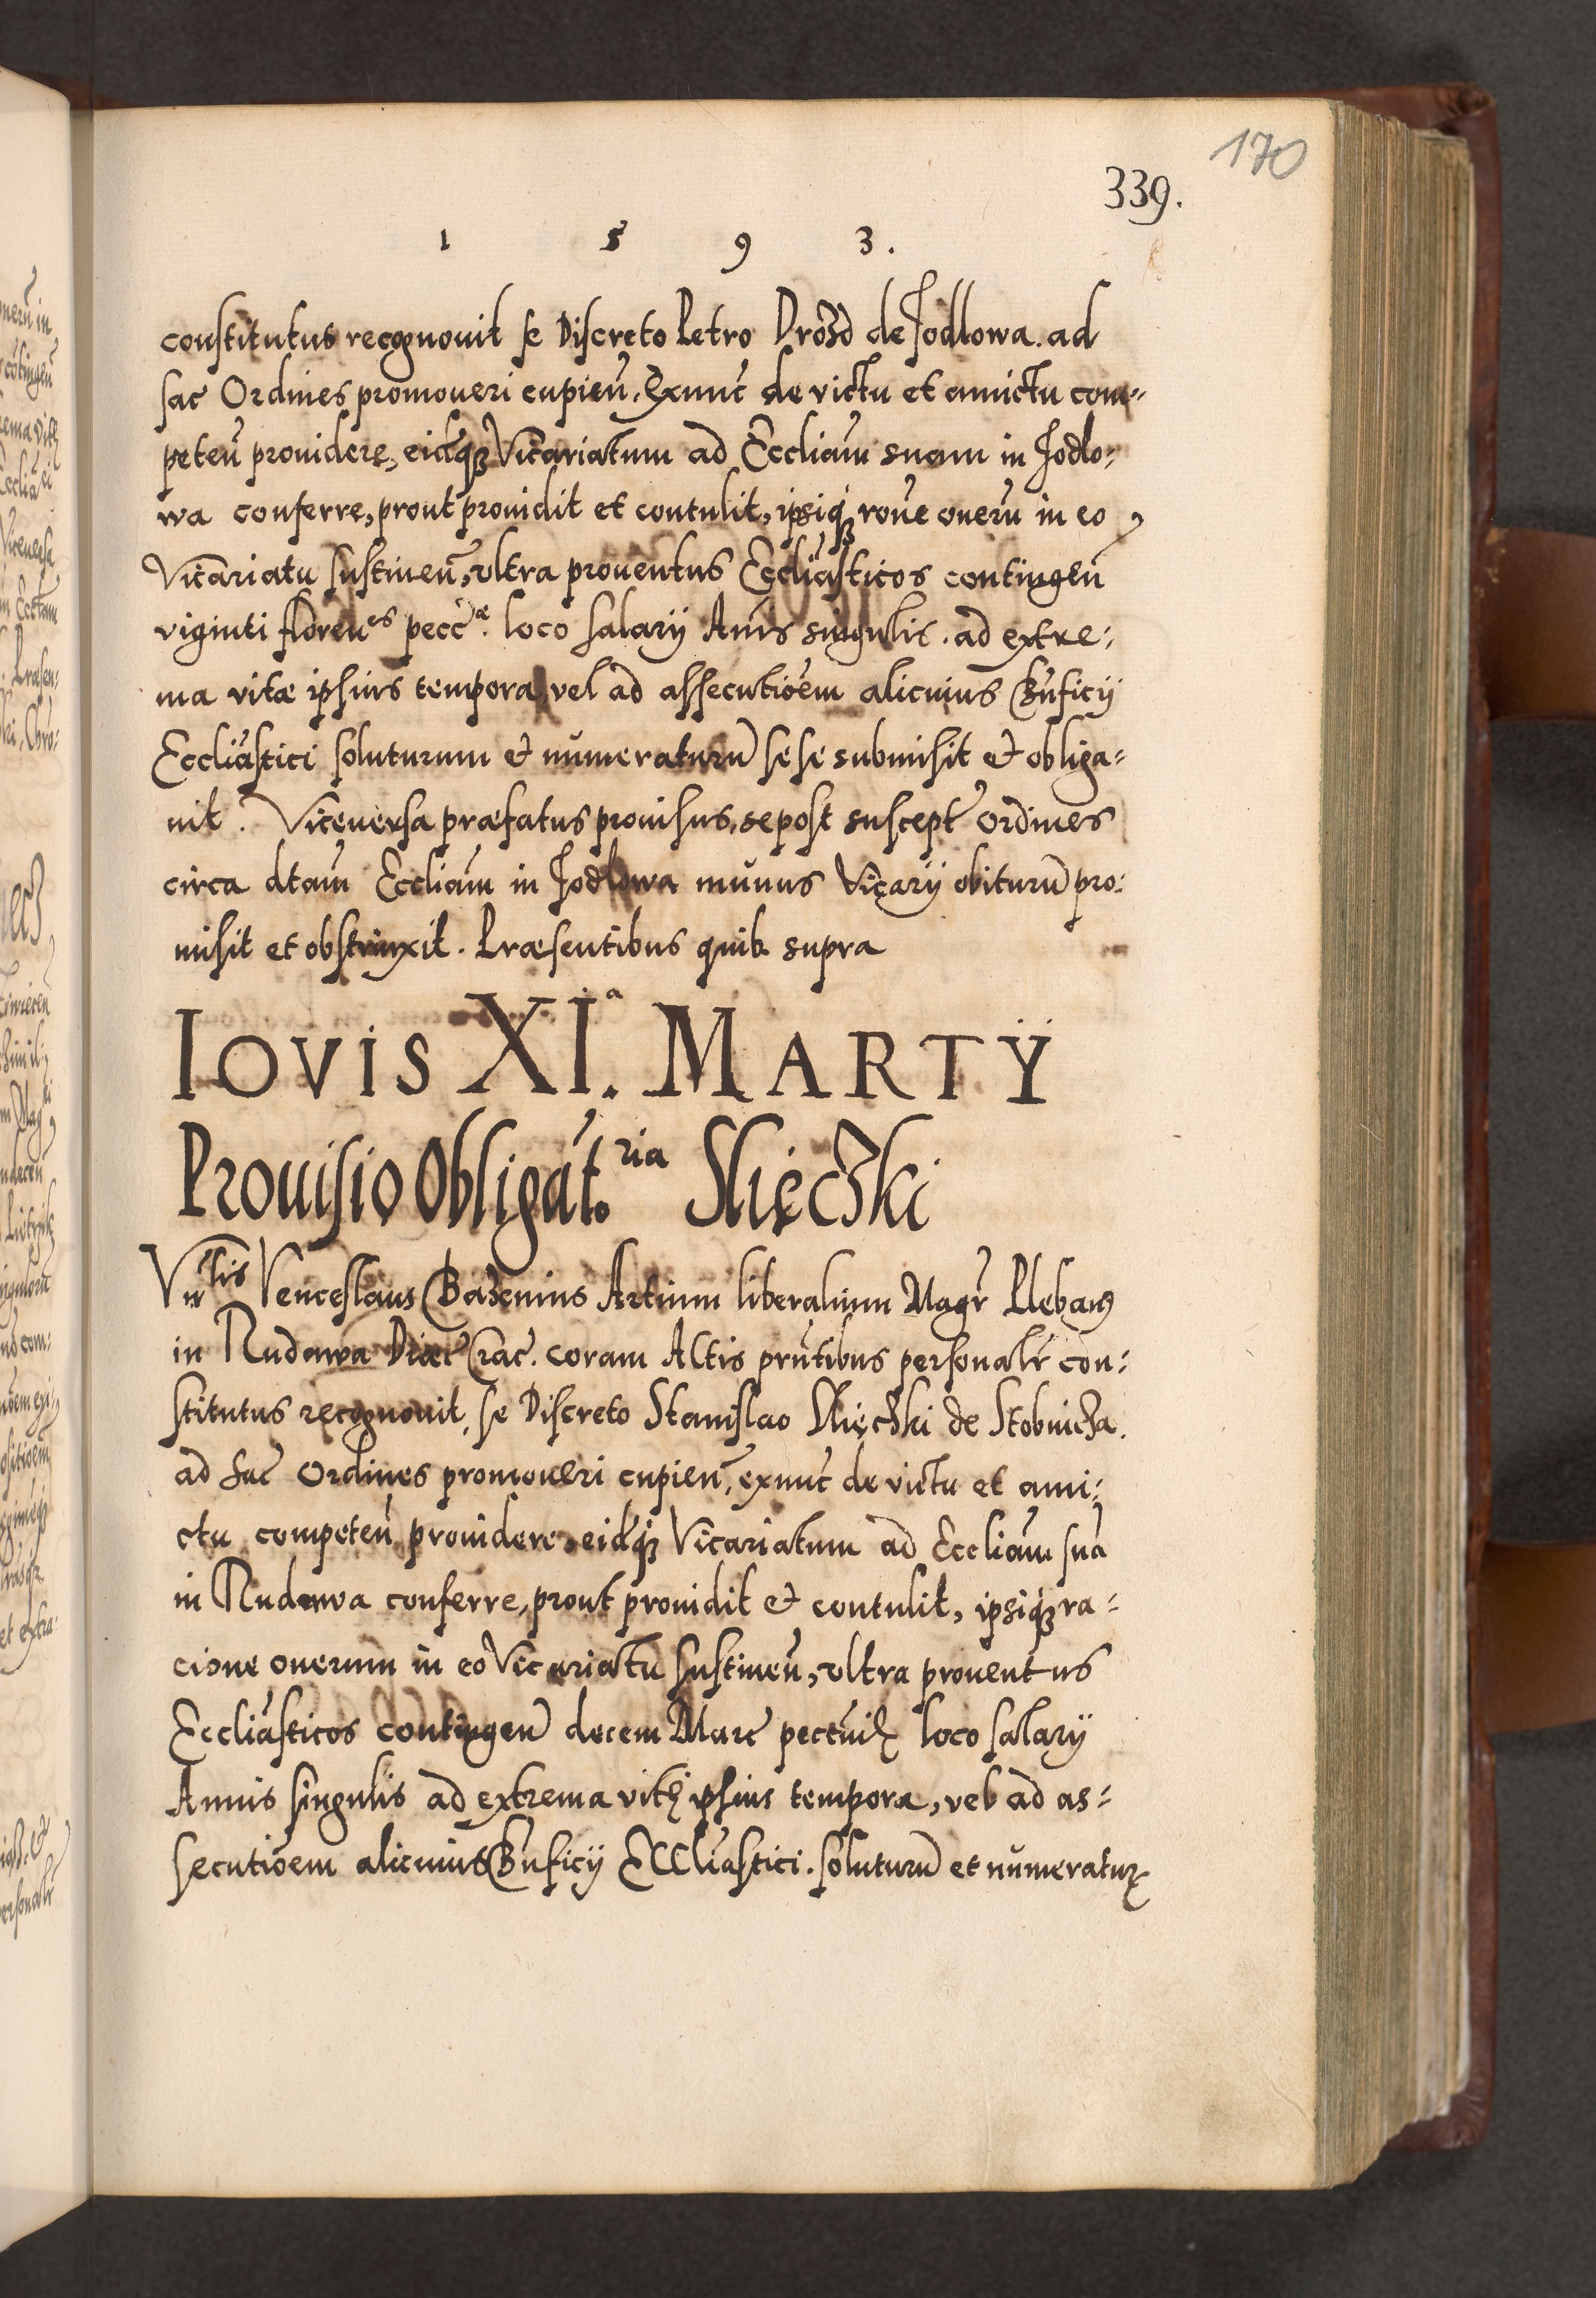 170
339.
1 5 9 3.
constitutus recognouit se Discreto Petro Drozd de Jodlowa. ad
sac Ordines promoueri cupien̄. Exnunc de victu et amictu com-
peten̄ prouidere, eidq́ꝫ Vicariatum ad Eccliam suam in Jodlo-
wa conferre, prout prouidit et contulit, ipsiq́ꝫ rōne onerū in eo
Vicariatu sustinen̄, vltra prouentus Eccliasticos contingen̄
viginti floren̄es pecc̄æ. loco salarij Annis singulis. ad extre-
ma vitæ ipsius tempora, vel ad assecutiōem alicuius Bn̄ficij
Eccliastici soluturum et numeraturū sese submisit et obliga-
uit. Viceuersa præfatus prouisus, se post suscept Ordines
circa dtam Eccliam in Jodlowa munus Vicarij obiturū pro-
misit et obstrinxit. Præsentibus quib. supra
IOVIS XI.a MARTŸ
Prouisio Obligat.ria Slięczki
Vn̄lis Venceslaus Bazenius Artium liberalium Magr̄ Plebanꝰ
in Rudawa Dioec Crac. coram Actis prn̄tibus personalr̄ con-
stitutus recognouit, se Discreto Stanislao Slięczki de Stobnicza.
ad sac Ordines promoueri cupien̄, exnunc de victu et ami-
ctu competen̄ prouidere, eidq́ꝫ Vicariatum ad Eccliam suā
in Rudawa conferre, prout prouidit et contulit, ipsiq́ꝫ ra-
cione onerum in eo Vicariatu sustinen̄, vltra prouentus
Eccliasticos contingen̄ decem Marc pecun̄iæ loco salarij
Annis singulis ad extrema vitę ipsius tempora, vel ad as-
secutiōem alicuius Bn̄ficij Eccliastici. soluturū et numeraturꝫ